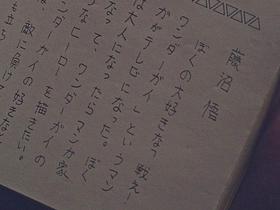 藤沼 悟
ぼくの大好きな「戦え！
ワンダーガイ」というマン
ガがテレビになった。ぼく
は大人になったらマンガ家
なって、ワンダーガイの
なヒーローを描きたい。
敵に負け
立ち